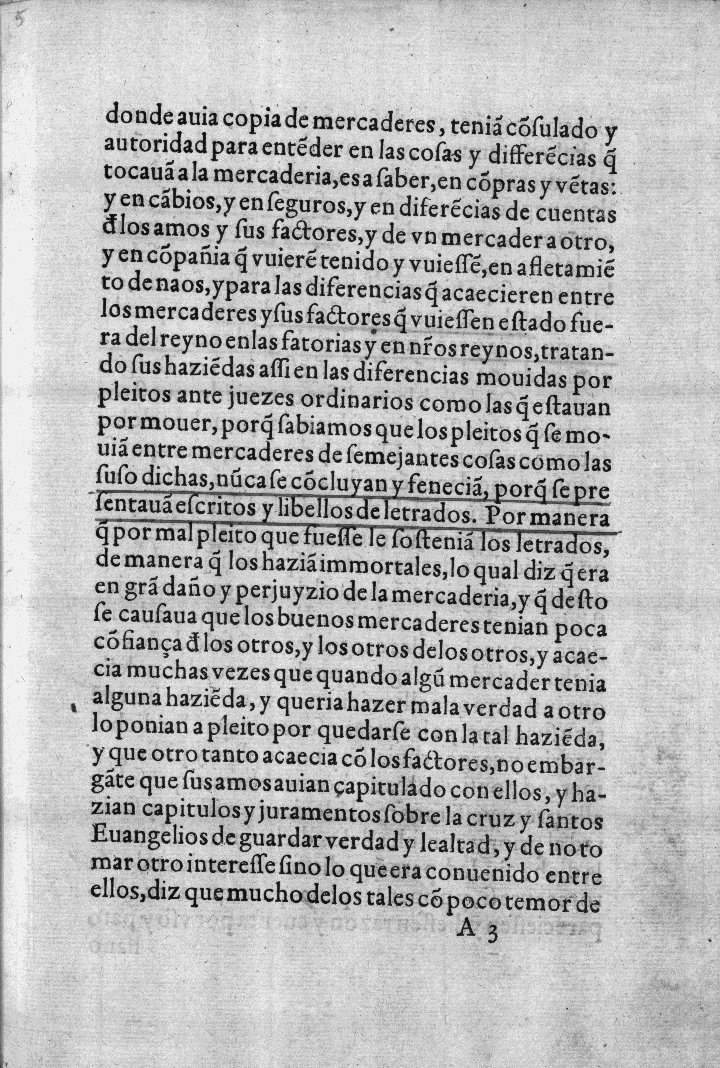 5
donde auia copia de mercaderes, teniā cōſulado y
autoridad para entēder en las coſas y differēcias q̄
tocauā a la mercaderia, es a ſaber, en cōpras y vētas:
y en cābios, y en ſeguros, y en diferēcias de cuentas
đ los amos y ſus factores, y de vn mercader a otro,
y en cōpañia q̄ vuierē tenido y vuieſſē, en afletamiē
to de naos, y para las diferencias q̄ acaecieren entre
los mercaderes y ſus factores q̄ vuieſſen eſtado fue-
ra del reyno en las fatorias y en nr̄os reynos, tratan-
do ſus haziēdas aſſi en las diferencias mouidas por
pleitos ante juezes ordinarios como las q̄ eſtauan
por mouer, porq̄ ſabiamos que los pleitos q̄ ſe mo-
uiā entre mercaderes de ſemejantes coſas como las
ſuſo dichas, nūca ſe cōcluyan y feneciā, porq̄ ſe pre
ſentauā eſcritos y libellos de letrados. Por manera
q̄ por mal pleito que fueſſe le ſoſteniā los letrados,
de manera q̄ los haziā immortales, lo qual diz q̄ era
en grā daño y perjuyzio de la mercaderia, y q̄ deſto
ſe cauſaua que los buenos mercaderes tenian poca
cōfiança đ los otros, y los otros delos otros, y acae-
cia muchas vezes que quando algū mercader tenia
alguna haziēda, y queria hazer mala verdad a otro
lo ponian a pleito por quedarſe con la tal haziēda,
y que otro tanto acaecia cō los factores, no embar-
gāte que ſus amos auian çapitulado con ellos, y ha-
zian capitulos y juramentos ſobre la cruz y ſantos
Euangelios de guardar verdad y lealtad, y de no to
mar otro intereſſe ſino lo que era conuenido entre
ellos, diz que mucho delos tales cō poco temor de
A 3